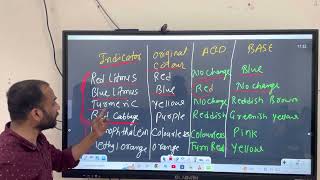 Indicator Original Colour ACID BASE
Red Litmus Red No change Blue
Blue Litmus Blue Red No change
Turmeric Yellow No change Reddish Brown
Red Cabbage Purple Reddish Greenish yellow
Colourless Colourless Pink
Methyl orange Orange Turn Red Yellow